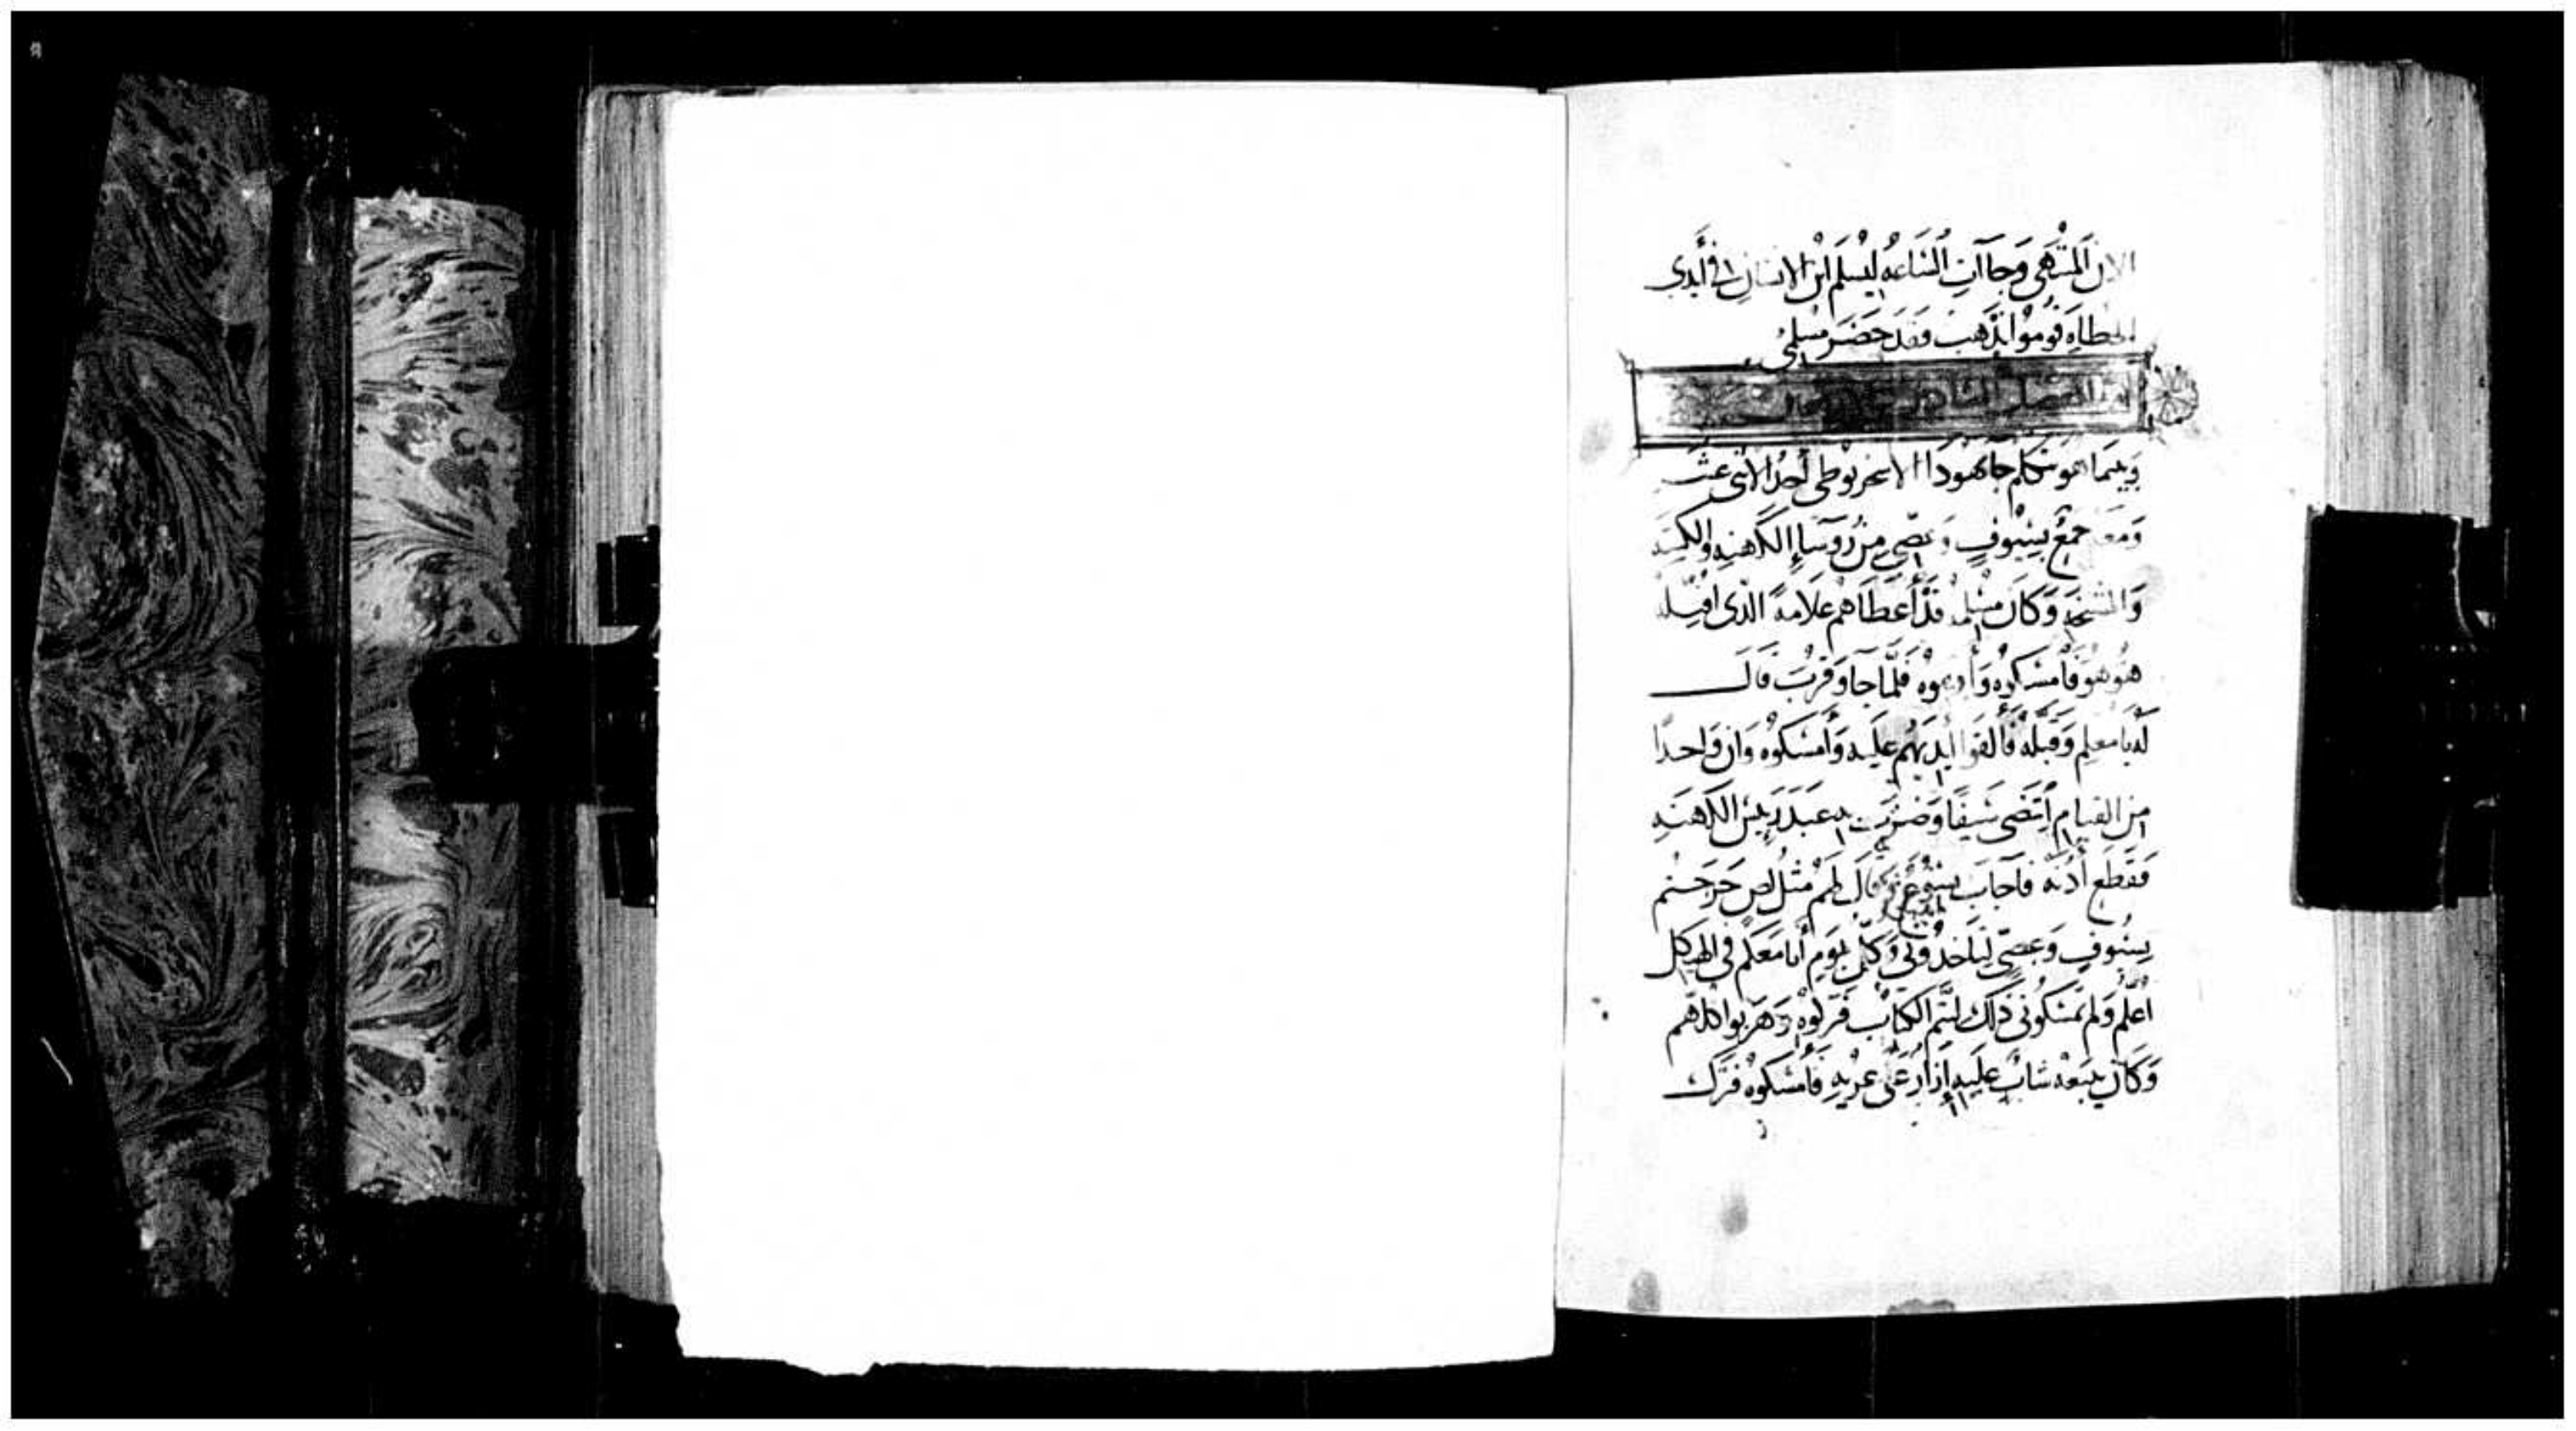 الان المنتهى وجاات الساعه ليسلم ابن الانسان في أيدي
الخطاه قوموا نذهب فقد حضر مسلمي
الفصل
وبينما هو يتكلم جا يهودا الاسخريوطى أحد الاثنى عشر
ومعه جمع بسيوف وعصى من روسا الكهنه والكتبه
والمشيخه وكان مسلمه قد أعطاهم علامه الذى اقبله
هو هو فأمسكوه وا فلما جا وقرب قال
له يا معلم وقبله فألقوا ايديهم عليه وأمسكوه وان واحدا
من القيام انتضى سيفا وضرب به عبد رييس الكهنه
فقطع أدنه فاجاب يسوع وقال لهم مثل لص خرجتم
بسيوف وعصى لتاخدونى وكل يوم أنا معكم في الهيكل
أعلم ولم تمسكونى ذلك ليتم الكتاب فتركوه وهربوا كلهم
وكان يتبعه شاب عليه إزار على عريه فأمسكوه فترك